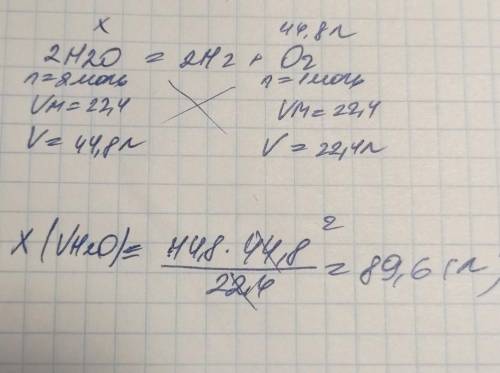 x 44,8л
2H2O = 2H2 + O2
n=2моль n=1моль
VM=22,4 VM=22,4
V=44,8л V=22,4л
2
X(VH2O)= 44,8 · 44,8 / 22,4 = 89,6(л)